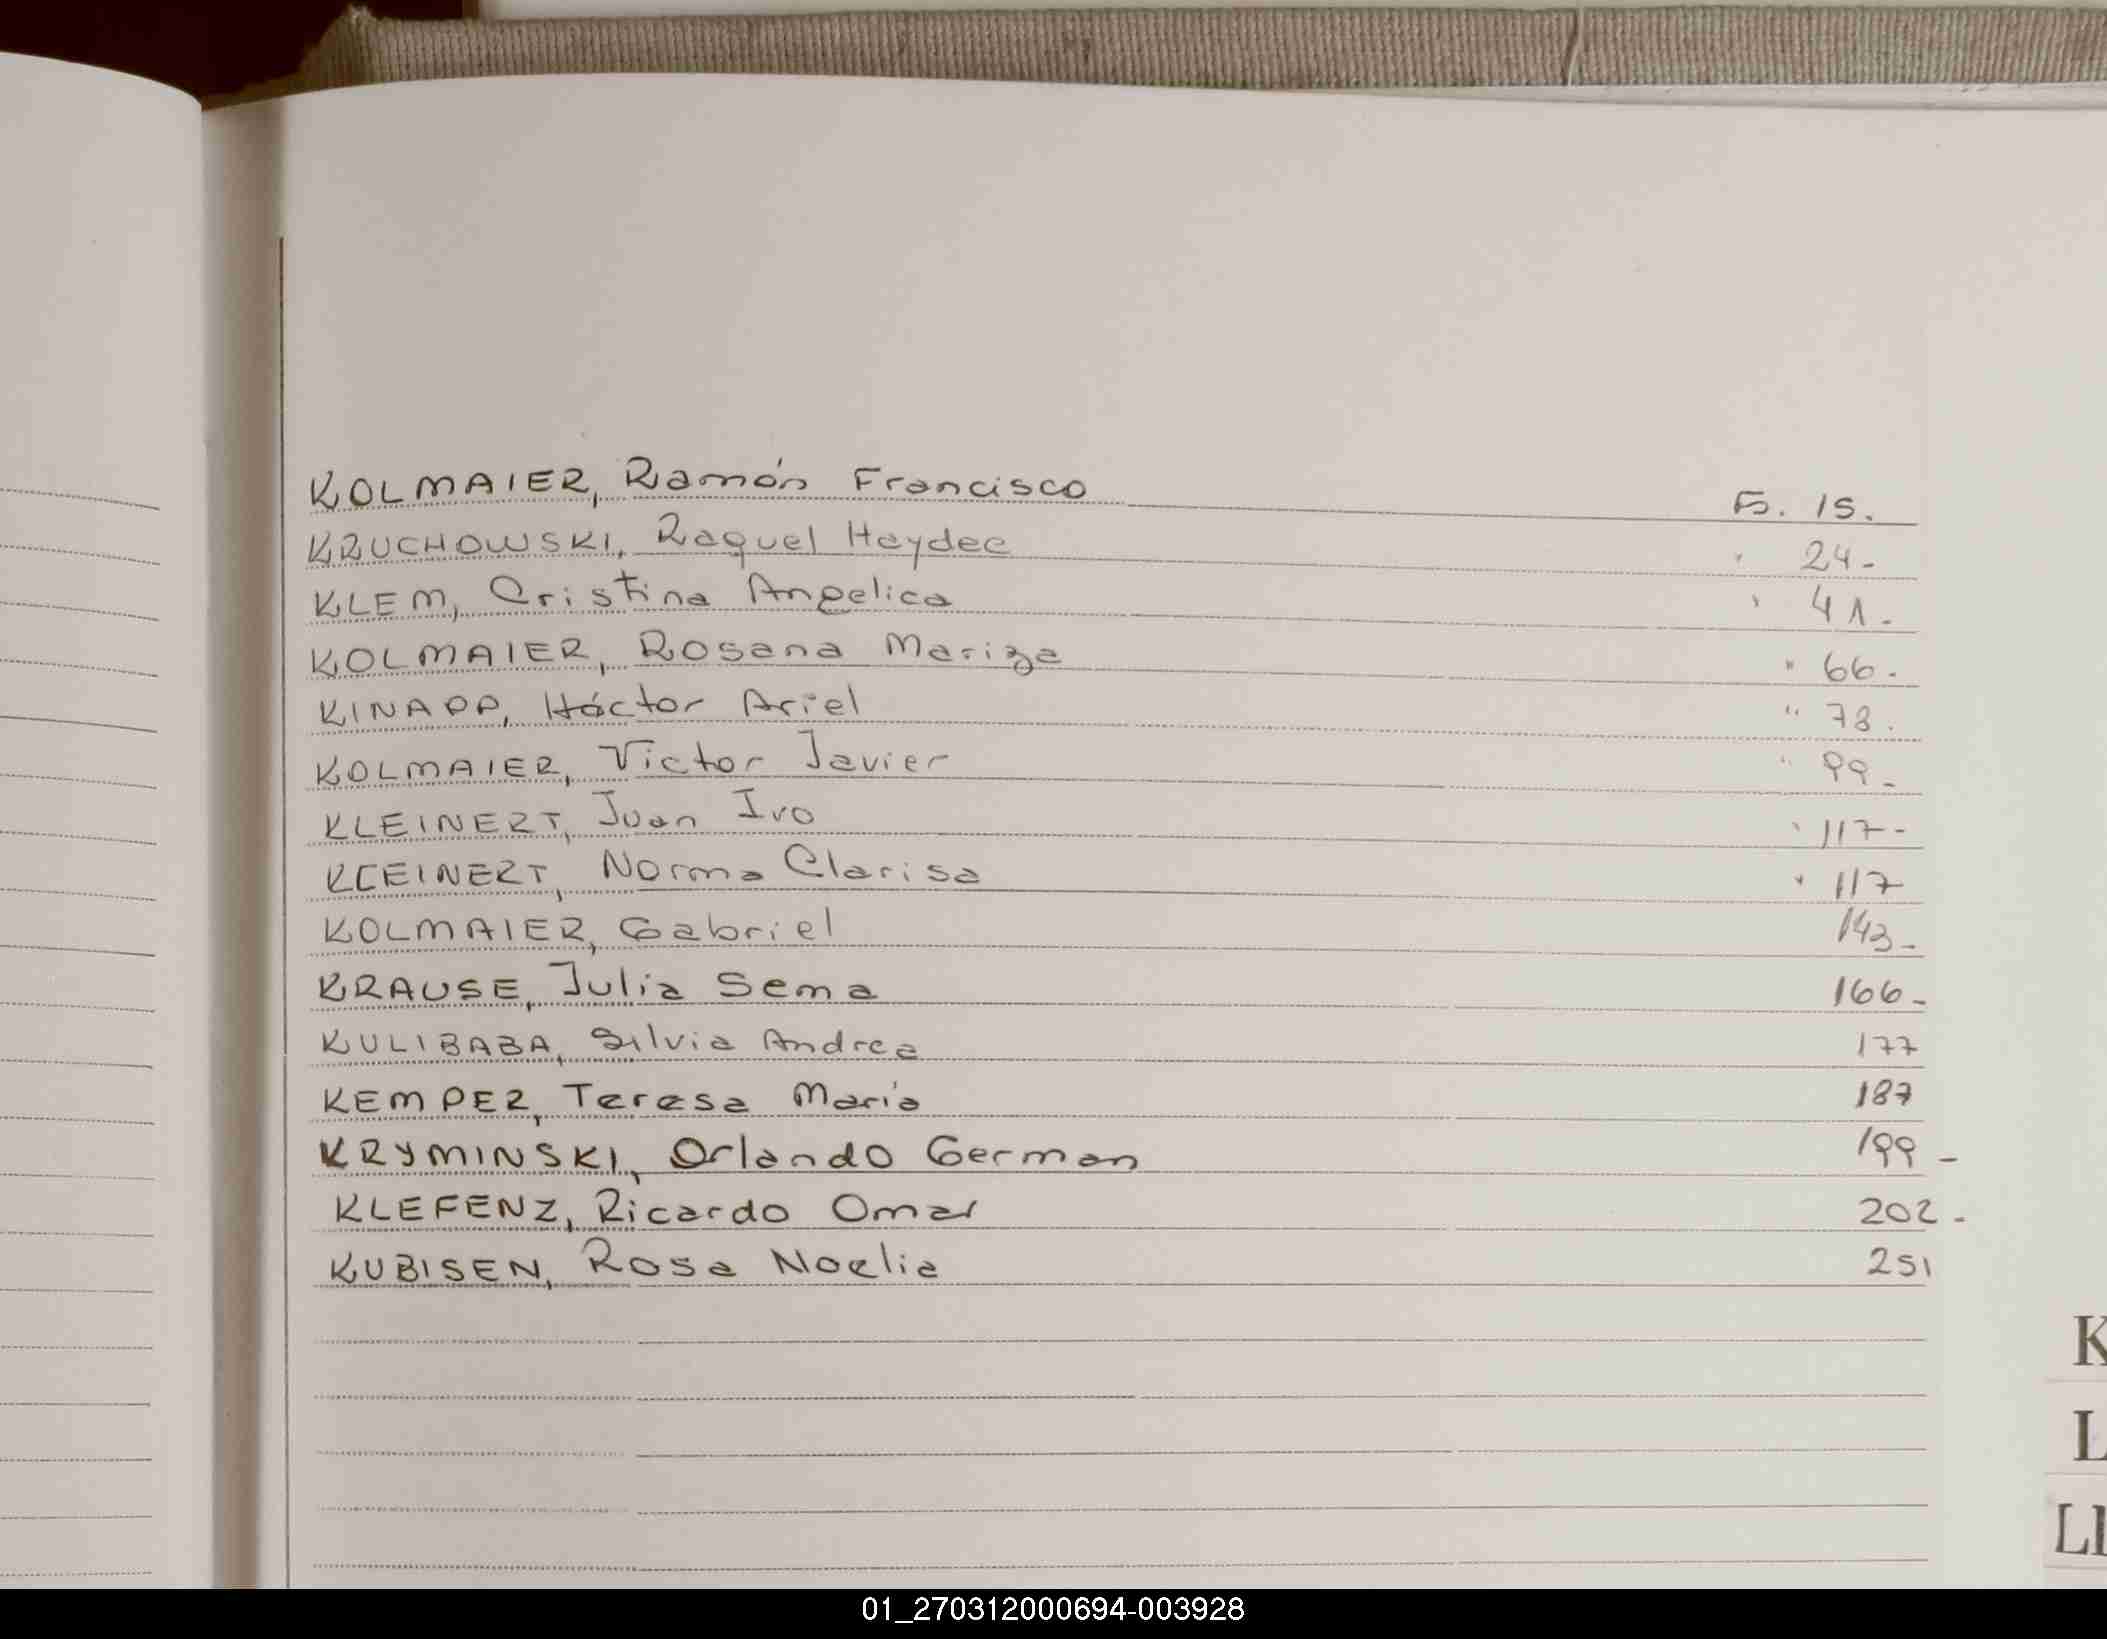 KOLMAIER, Ramón Francisco Fs. 15.
KRUCHOWSKI, Raquel Haydee " 24-
KLEM, Cristina Angelica " 41-
KOLMAIER, Rosana Mariza " 66-
KINAPP, Háctor Ariel " 78.
KOLMAIER, Victor Javier " 99-
KLEINERT, Juan Ivo " 117-
KLEINERT, Norma Clarisa " 117
KOLMAIER, Gabriel 143-
KRAUSE, Julia Sema 166-
KULIBABA, Silvia Andrea 177
KEMPER, Teresa María 187
KRYMINSKI, Orlando German 199-
KLEFENZ, Ricardo Omar 202-
KUBISEN, Rosa Noelia 251
K
L
Ll
01_270312000694-003928